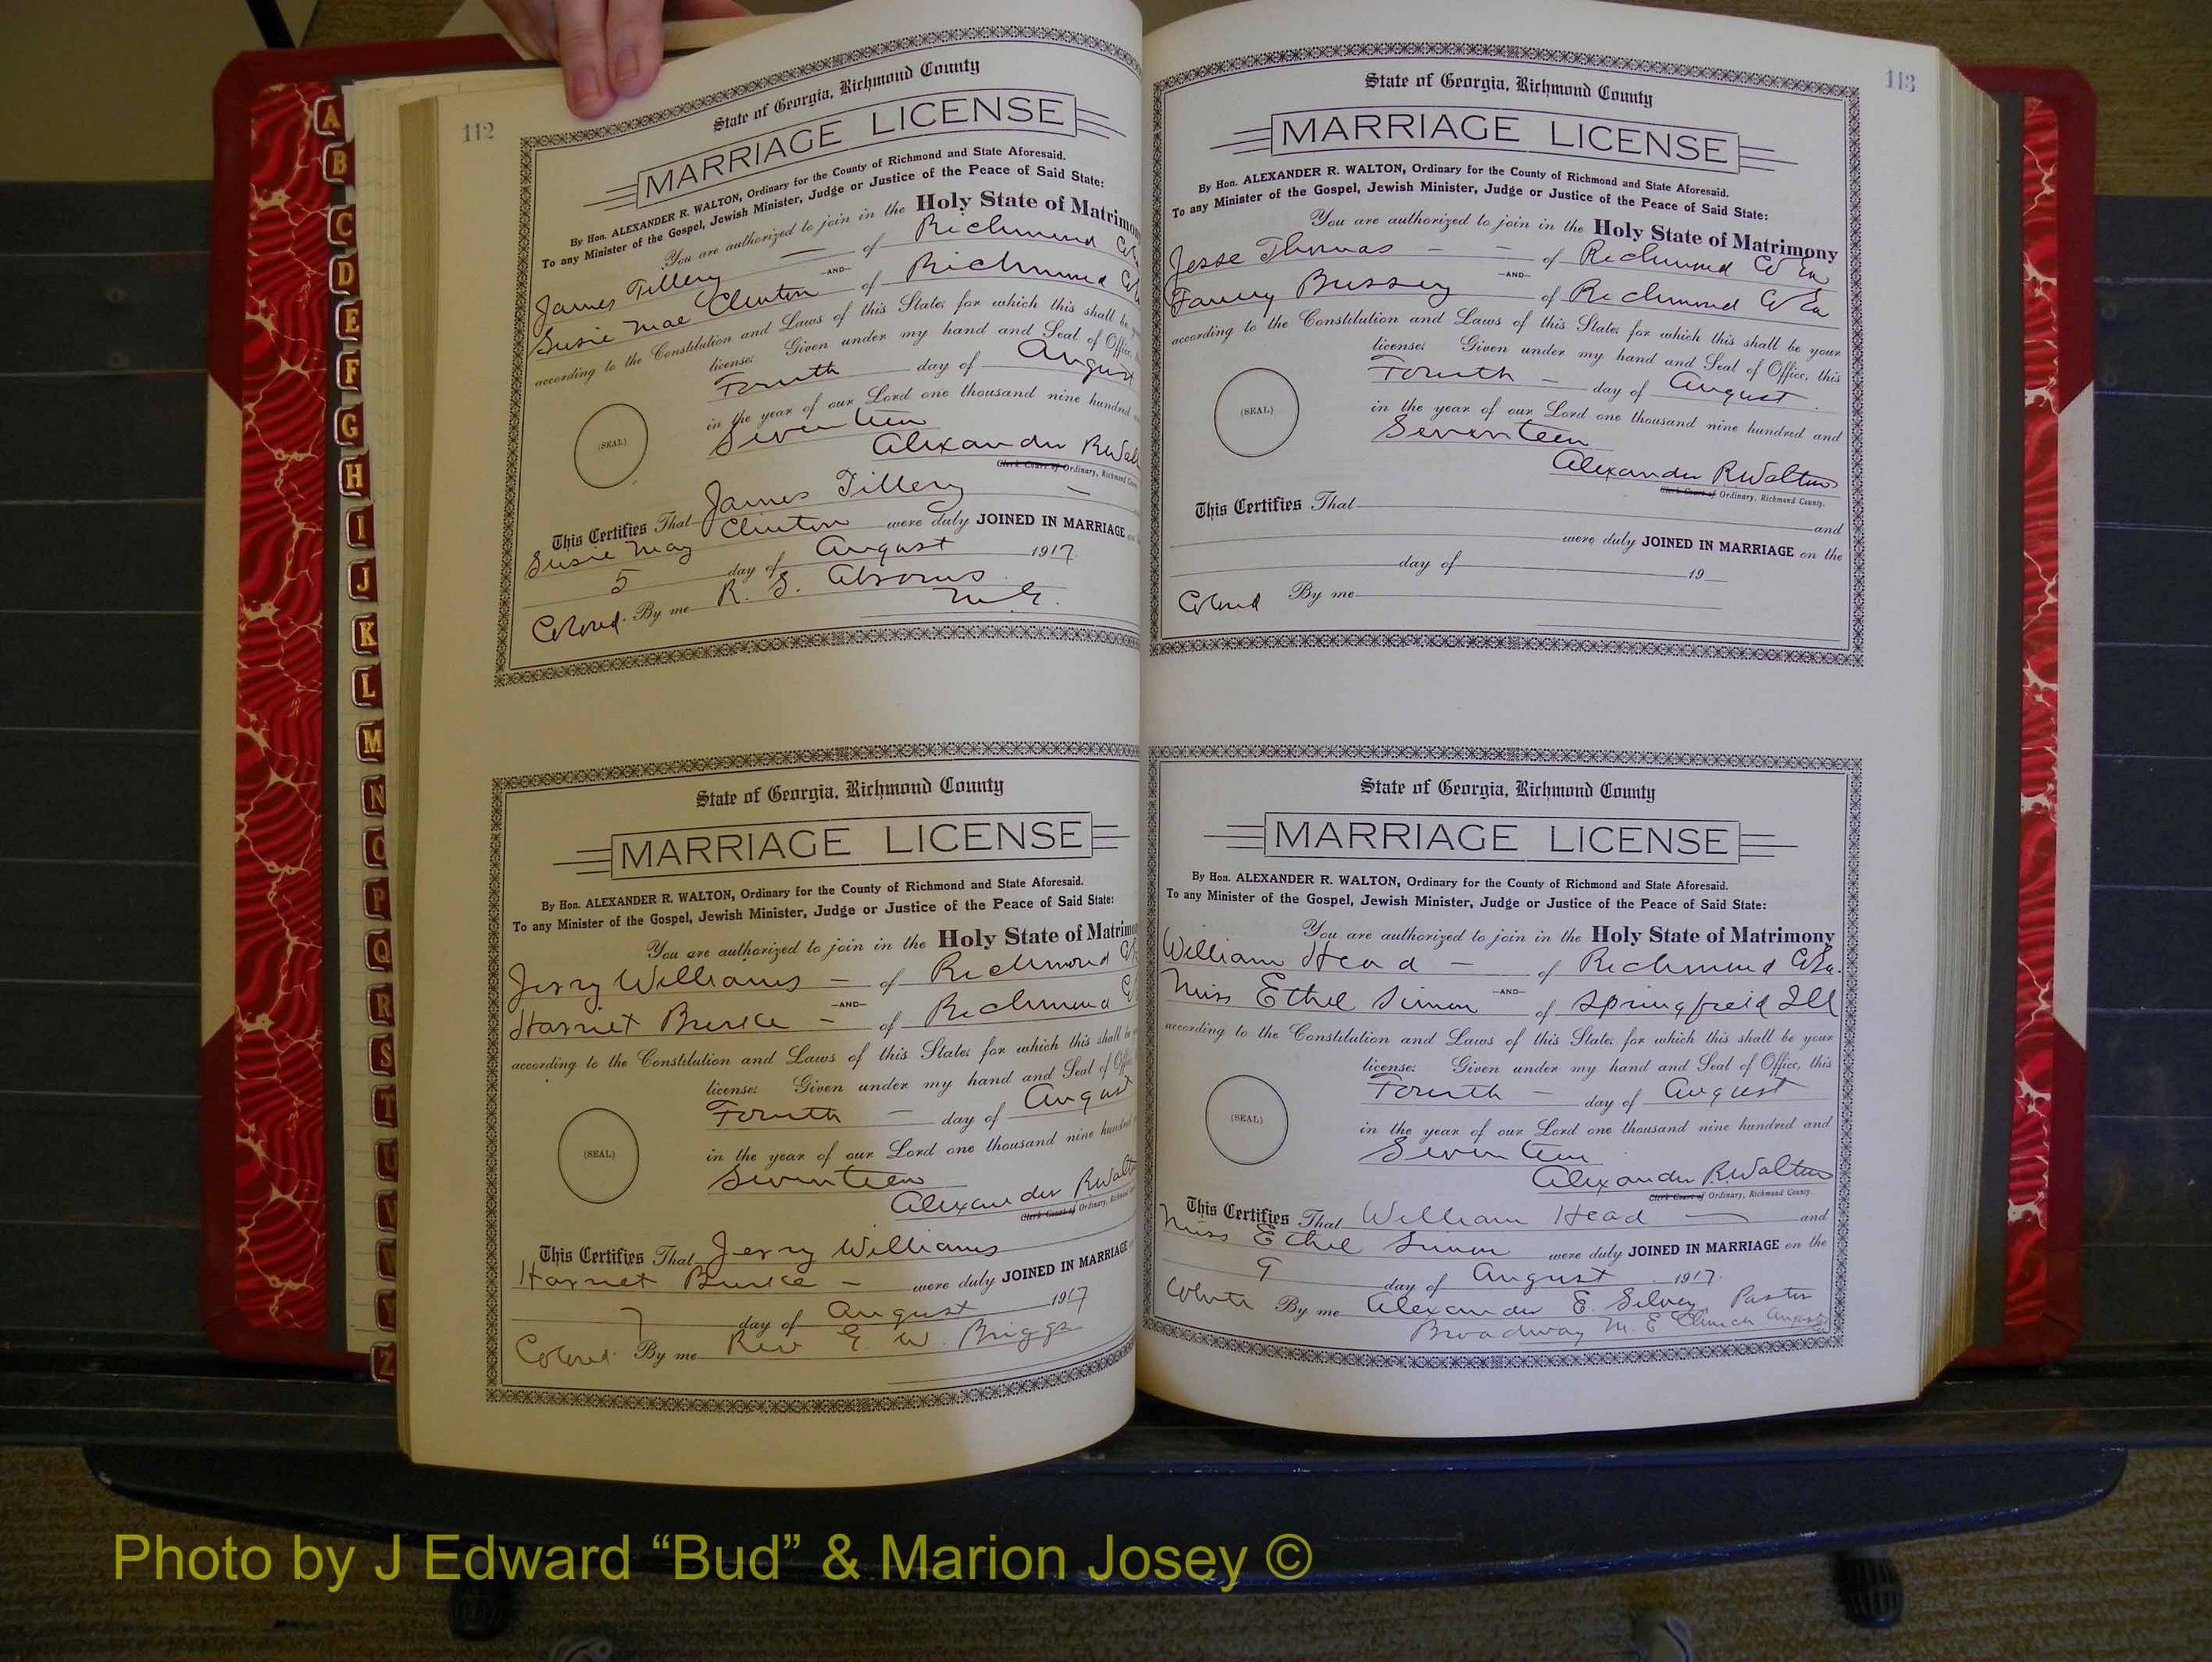 112
State of Georgia, Richmond County
MARRIAGE LICENSE
By Hon. ALEXANDER R. WALTON, Ordinary for the County of Richmond and State Aforesaid.
To any Minister of the Gospel, Jewish Minister, Judge or Justice of the Peace of Said State:
You are authorized to join in the Holy State of Matrimo
James Tillery — of Richmond Co
—AND—
Susie Mae Clinton of Richmond Co
according to the Constitution and Laws of this State; for which this shall be
license: Given under my hand and Seal of Office,
Fourth day of August
in the year of our Lord one thousand nine hundred
Seventeen
(SEAL)
Alexander R Wal
Clerk Court of Ordinary, Richmond
This Certifies That James Tillery —
Susie May Clinton were duly JOINED IN MARRIAGE
5 day of August 1917.
Colored. By me R. S.
M. G.
State of Georgia, Richmond County
MARRIAGE LICENSE
By Hon. ALEXANDER R. WALTON, Ordinary for the County of Richmond and State Aforesaid.
To any Minister of the Gospel, Jewish Minister, Judge or Justice of the Peace of Said State:
You are authorized to join in the Holy State of Matrimo
Jerry Williams — of Richmond
—AND—
Harriet Burke — of Richmond
according to the Constitution and Laws of this State; for which this shall be
license: Given under my hand and Seal of
Fourth — day of August
in the year of our Lord one thousand nine hundred
Seventeen
(SEAL)
Alexander R Walt
Clerk Court of Ordinary,
This Certifies That Jerry Williams
Harriet Burke — were duly JOINED IN MARRIAGE
7 day of August 1917
Colored. By me Rev E. W. Briggs
113
State of Georgia, Richmond County
MARRIAGE LICENSE
By Hon. ALEXANDER R. WALTON, Ordinary for the County of Richmond and State Aforesaid.
To any Minister of the Gospel, Jewish Minister, Judge or Justice of the Peace of Said State:
You are authorized to join in the Holy State of Matrimony
Jesse Thomas — — of Richmond Co Ga
—AND—
Fanny Bussey of Richmond Co Ga
according to the Constitution and Laws of this State; for which this shall be your
license: Given under my hand and Seal of Office, this
Fourth — day of August
in the year of our Lord one thousand nine hundred and
Seventeen
(SEAL)
Alexander R Walton
Clerk Court of Ordinary, Richmond County.
This Certifies That
and
were duly JOINED IN MARRIAGE on the
day of 19
Colored By me
State of Georgia, Richmond County
MARRIAGE LICENSE
By Hon. ALEXANDER R. WALTON, Ordinary for the County of Richmond and State Aforesaid.
To any Minister of the Gospel, Jewish Minister, Judge or Justice of the Peace of Said State:
You are authorized to join in the Holy State of Matrimony
William Head — of Richmond Co Ga.
—AND—
Miss Ethel Simon of Springfield Ill
according to the Constitution and Laws of this State; for which this shall be your
license: Given under my hand and Seal of Office, this
Fourth — day of August
in the year of our Lord one thousand nine hundred and
Seventeen
(SEAL)
Alexander R Walton
Clerk Court of Ordinary, Richmond County.
This Certifies That William Head — and
Miss Ethel Simon were duly JOINED IN MARRIAGE on the
9 day of August 1917.
White By me Alexander E. Silvey Pastor
Broadway M. E Church Augusta
A
B
C
D
E
F
G
H
I
J
K
L
M
N
O
P
Q
R
S
T
U
V
W
Y
Z
Photo by J Edward “Bud” & Marion Josey ©